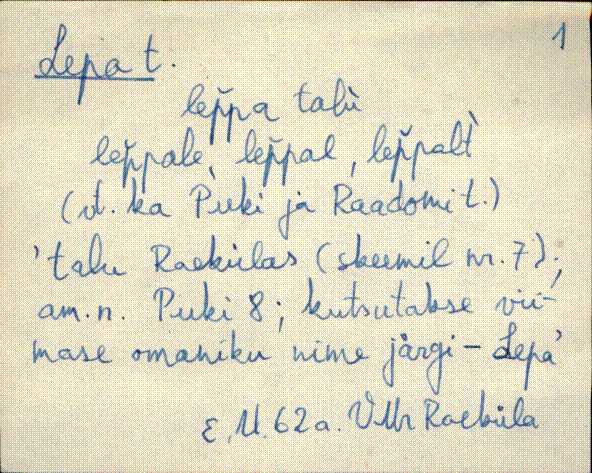 1
Lepa t.
lep̆pa talù
lep̆pale, lep̆pal, lep̆palt̀
(vt. ka Puki ja Raadomi t.)
'talu Raekülas (skeemil nr. 7);
am.n. Puki 8; kutsutakse vii-
mase omaniku nime järgi – Lepa'
E. U. 62a. VMr Raeküla